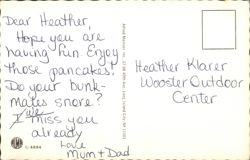 Dear Heather,
Hope you are
having fun. Enjoy
those pancakes!
Do your bunk-
mates snore?
I miss you
already
Love
Mum + Dad
Heather Klarer
Wooster Outdoor
Center